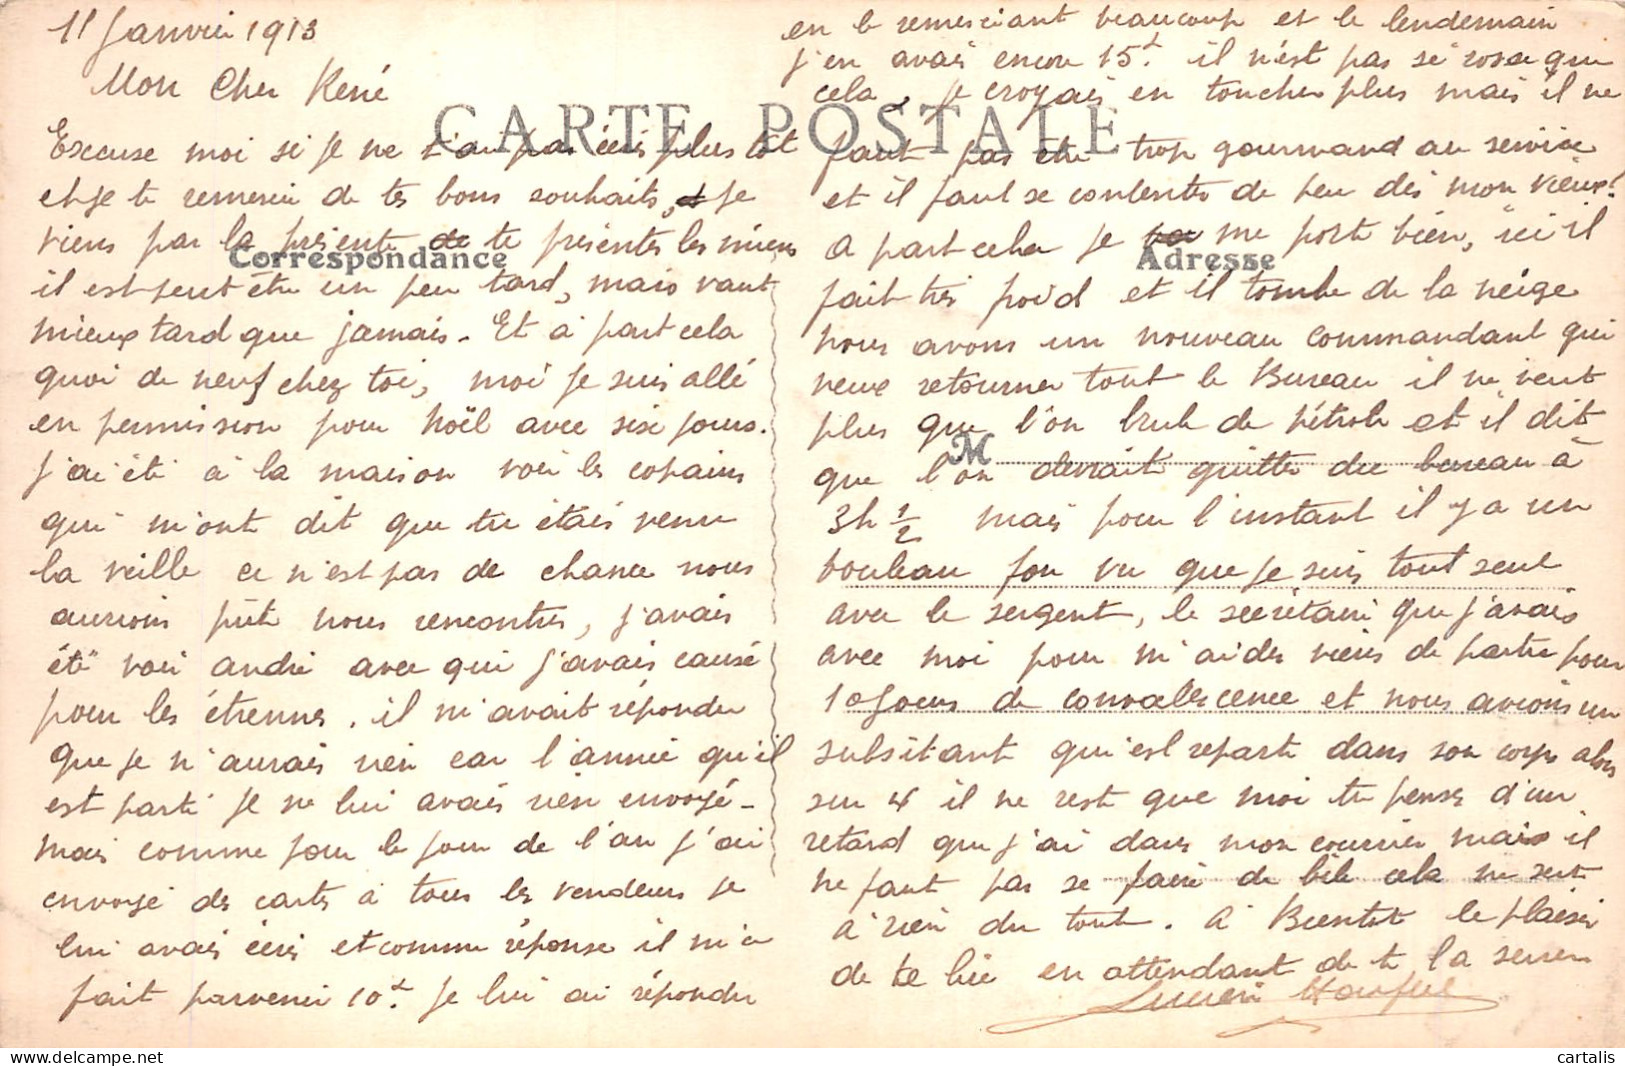 11 Janvier 1913
Mon Cher René
CARTE POSTALE
Excuse moi si je ne t'ai pas écris plus tôt
et je te remercie de tes bons souhaits, je
viens par la présente te présenter les miens
Correspondance
il est peut être un peu tard, mais vaut
mieux tard que jamais. Et à part cela
quoi de neuf chez toi, moi je suis allé
en permission pour Noël avec six jours.
J'ai été à la maison voir les copains
qui m'ont dit que tu étais venu
la veille ce n'est pas de chance nous
aurions pût nous rencontrer, j'avais
été voir andré avec qui j'avais causé
pour les étrennes. il m'avait répondu
que je n'aurais rien car l'année qu'il
est parti je ne lui avais rien envoyé-
mais comme pour le jour de l'an j'ai
envoyé des cartes à tous les vendeurs je
lui avais écris et comme réponse il m'a
fait parvenir 10f. je lui ai répondu
en le remerciant beaucoup et le lendemain
j'en avais encore 15f. il n'est pas si rosse que
cela, je croyais en toucher plus mais il ne
faut pas être trop gourmand au service
et il faut se contenter de peu dis mon vieux!
A part cela je me porte bien, ici il
Adresse
fait très froid et il tombe de la neige
nous avons un nouveau commandant qui
veux retourner tout le Bureau il ne veut
plus que l'on brule de pétrole et il dit
M
que l'on devrait quitter du bureau à
3h 1/2 mais pour l'instant il y a un
bouleau fou vu que je suis tout seul
avec le sergent, le secrétaire que j'avais
avec moi pour m'aider viens de partir pour
10 jours de convalescence et nous avions un
subsitant qui est reparti dans son corps alors
sur 4 il ne rest que moi tu penses d'un
retard que j'ai dans mon courrier mais il
ne faut pas se faire de bile cela ne sert
à rien du tout. A Bientôt le plaisir
de te lire en attendant de te la serrer
Lucien
cartalis